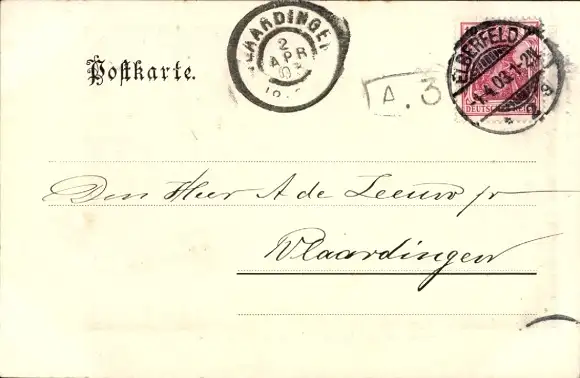 VLAARDINGEN
2
APR
03
ELBERFELD
1.4.03.1-2N
* 2 a
DEUTSCHES REICH
A. 3
Postkarte.
Den Heer A de Leeuw jr
Vlaardingen